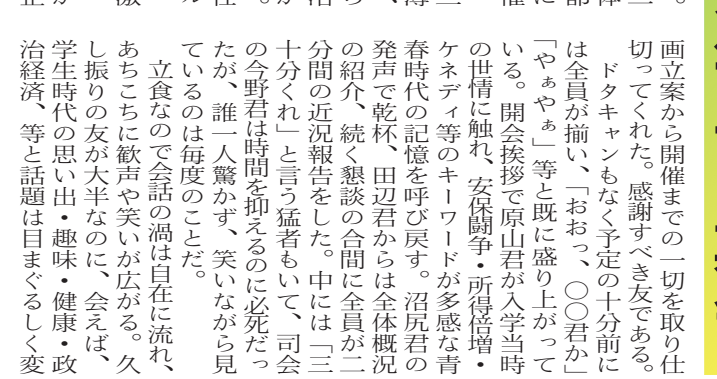 画立案から開催までの一切を取り仕
切ってくれた。感謝すべき友である。
ドタキャンもなく予定の十分前に
は全員が揃い、「おおっ、〇〇君か」
「やぁやぁ」等と既に盛り上がって
いる。開会挨拶で原山君が入学当時
の世情に触れ、安保闘争・所得倍増・
ケネディ等のキーワードが多感な青
春時代の記憶を呼び戻す。沼尻君の
発声で乾杯、田辺君からは全体概況
の紹介、続く懇談の合間に全員が二
分間の近況報告をした。中には「三
十分くれ」と言う猛者もいて、司会
の今野君は時間を抑えるのに必死だっ
たが、誰一人驚かず、笑いながら見
ているのは毎度のことだ。
立食なので会話の渦は自在に流れ、
あちこちに歓声や笑いが広がる。久
し振りの友が大半なのに、会えば、
学生時代の思い出・趣味・健康・政
治経済、等と話題は目まぐるしく変